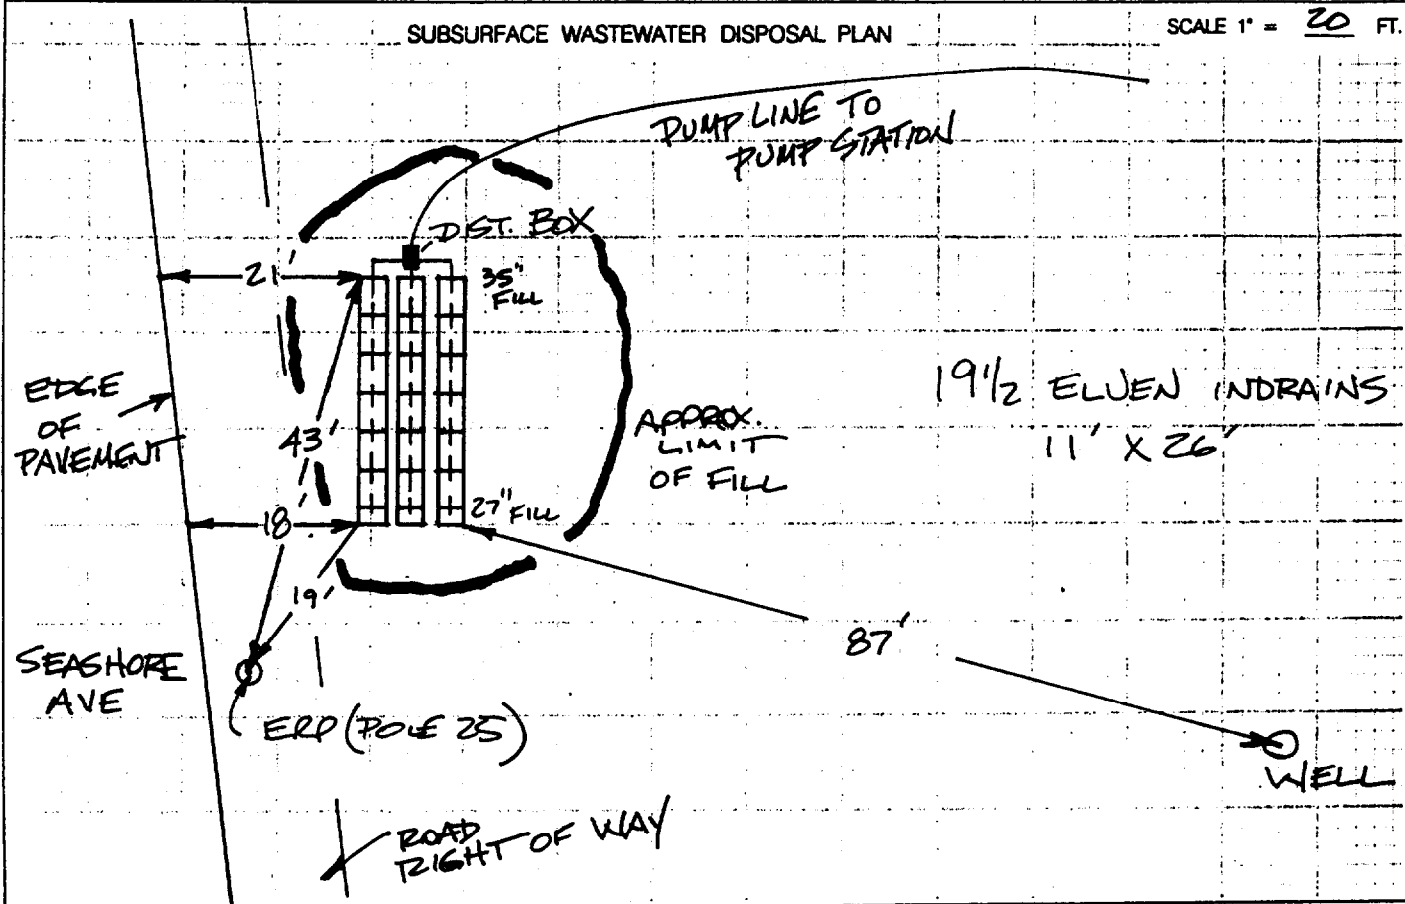 SUBSURFACE WASTEWATER DISPOSAL PLAN
SCALE 1" = 20 FT.
PUMP LINE TO
PUMP STATION
DIST. BOX
21'
35"
FILL
EDGE
OF
PAVEMENT
43'
APPROX.
LIMIT
OF FILL
19 1/2 ELJEN INDRAINS
11' X 26'
27" FILL
18'
19'
87'
SEASHORE
AVE
ERP (POLE 25)
WELL
ROAD
RIGHT OF WAY